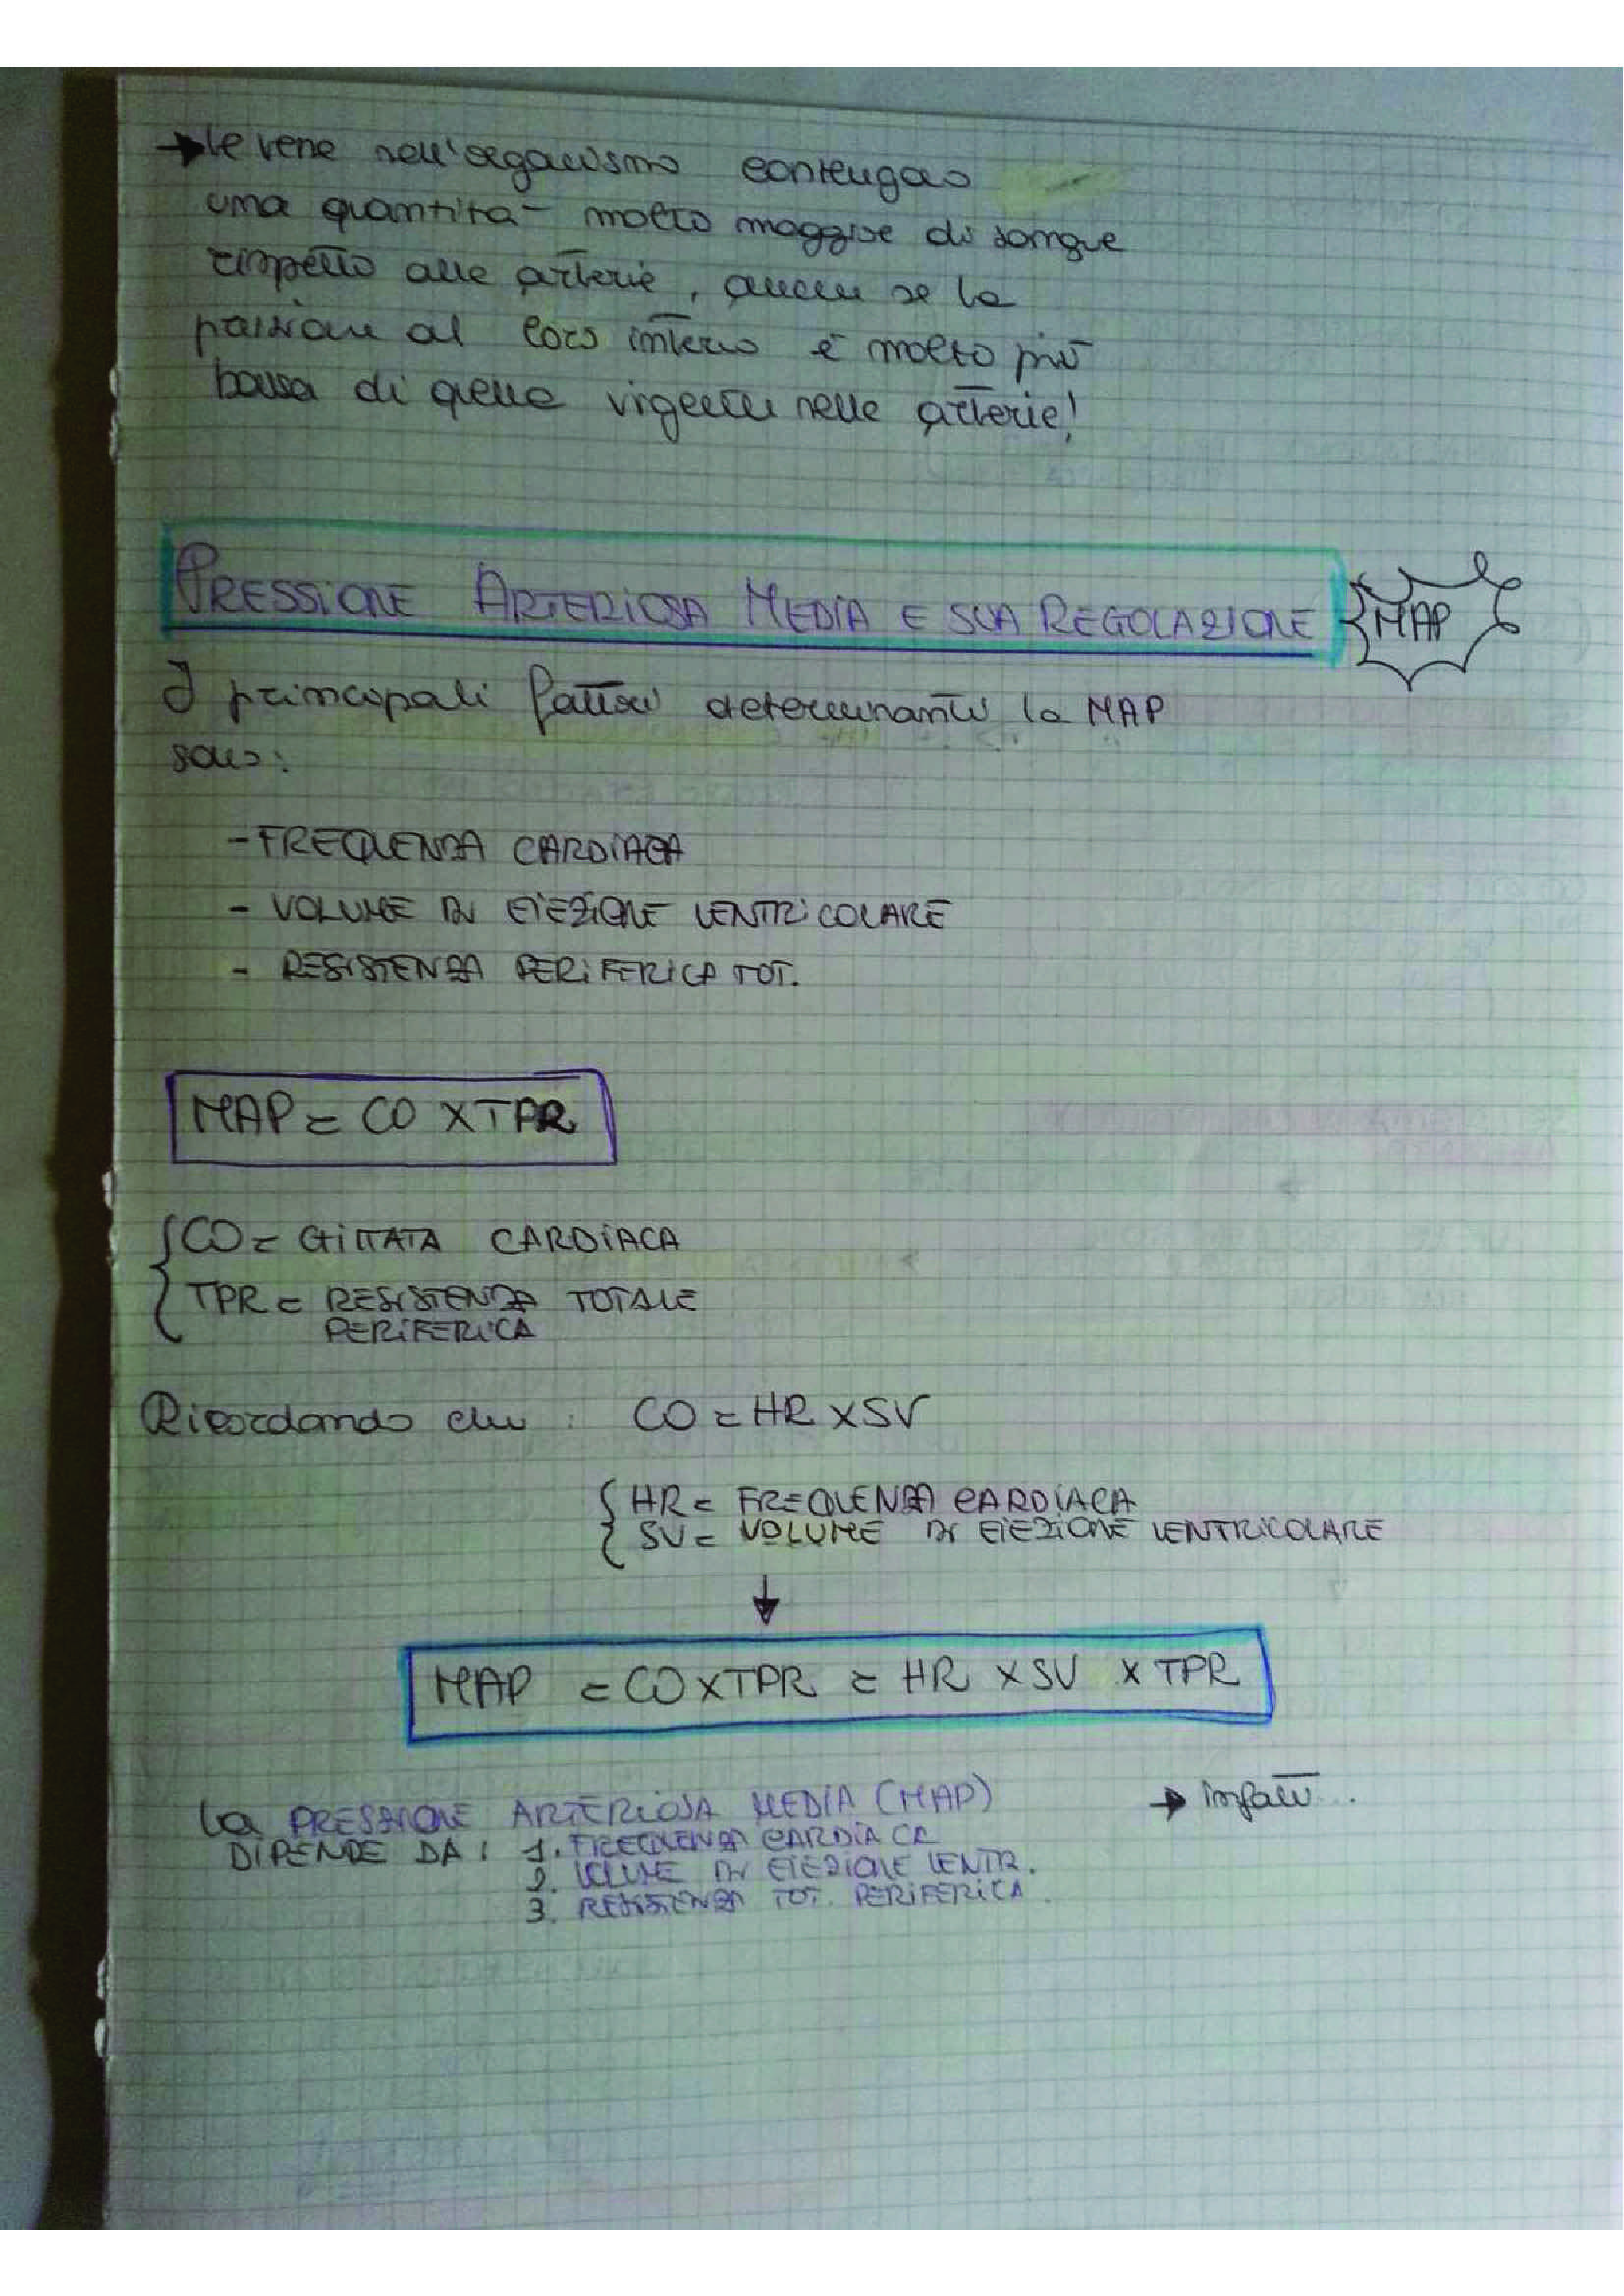 → le vene nell'organismo contengono
una quantità molto maggiore di sangue
rispetto alle arterie, anche se la
pressione al loro interno è molto più
bassa di quella vigente nelle arterie!
PRESSIONE ARTERIOSA MEDIA E SUA REGOLAZIONE MAP
I principali fattori determinanti la MAP
sono:
- FREQUENZA CARDIACA
- VOLUME DI EIEZIONE VENTRICOLARE
- RESISTENZA PERIFERICA TOT.
MAP = CO X TPR
CO = GITTATA CARDIACA
TPR = RESISTENZA TOTALE
PERIFERICA
Ricordando che : CO = HR X SV
HR = FREQUENZA CARDIACA
SV = VOLUME DI EIEZIONE VENTRICOLARE
↓
MAP = CO X TPR = HR X SV X TPR
La PRESSIONE ARTERIOSA MEDIA (MAP) → infatti...
DIPENDE DA : 1. FREQUENZA CARDIACA
2. VOLUME DI EIEZIONE VENTR.
3. RESISTENZA TOT. PERIFERICA.